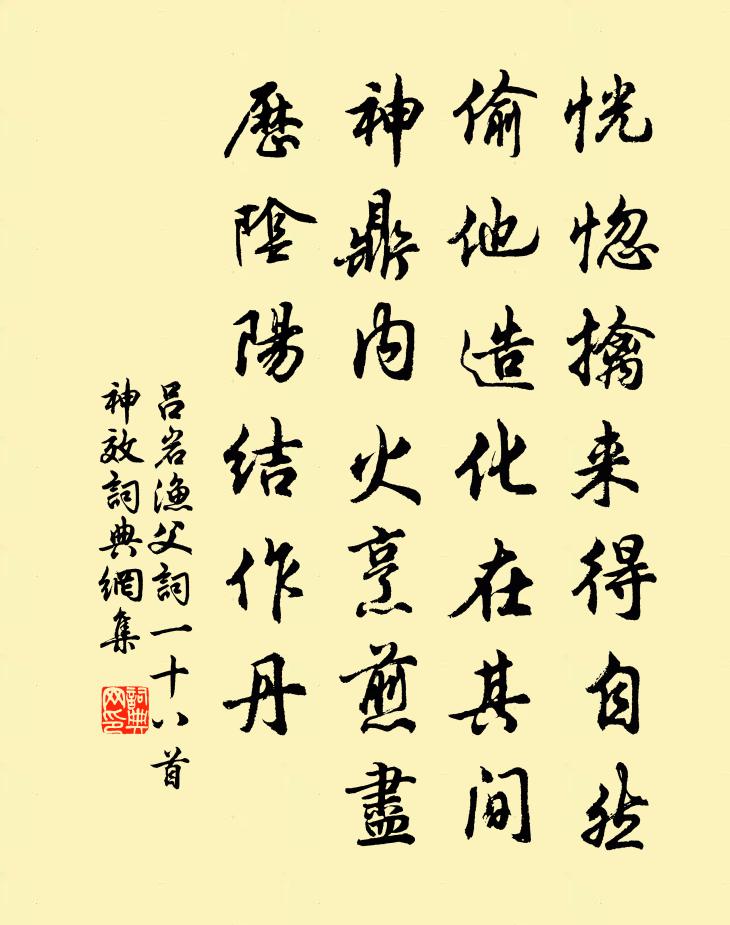 恍惚擒来得自然
偷他造化在其间
神鼎内火烹煎盡
歷陰陽结作丹
吕岩渔父詞一十八首
神效詞典網集
詞典网印